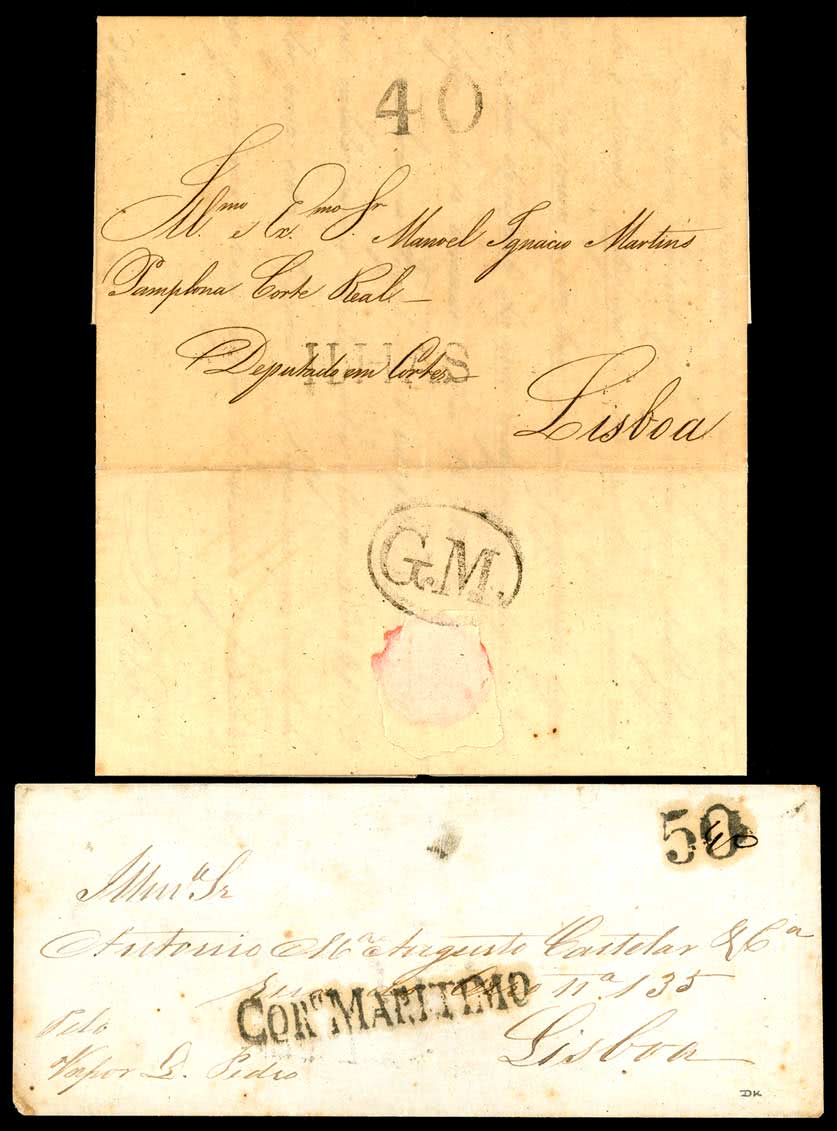 40
Ill.mo e Ex.mo Sr. Manoel Ignacio Martins
Pamplona Corte Real
ILHAS
Deputado em Cortes
Lisboa
G.M.
50
40
Illmo Sr
Antonio Augusto Castelar & Ca
no 135
CORo MARITIMO
Lisboa
Pelo
Vapor D. Pedro
DK